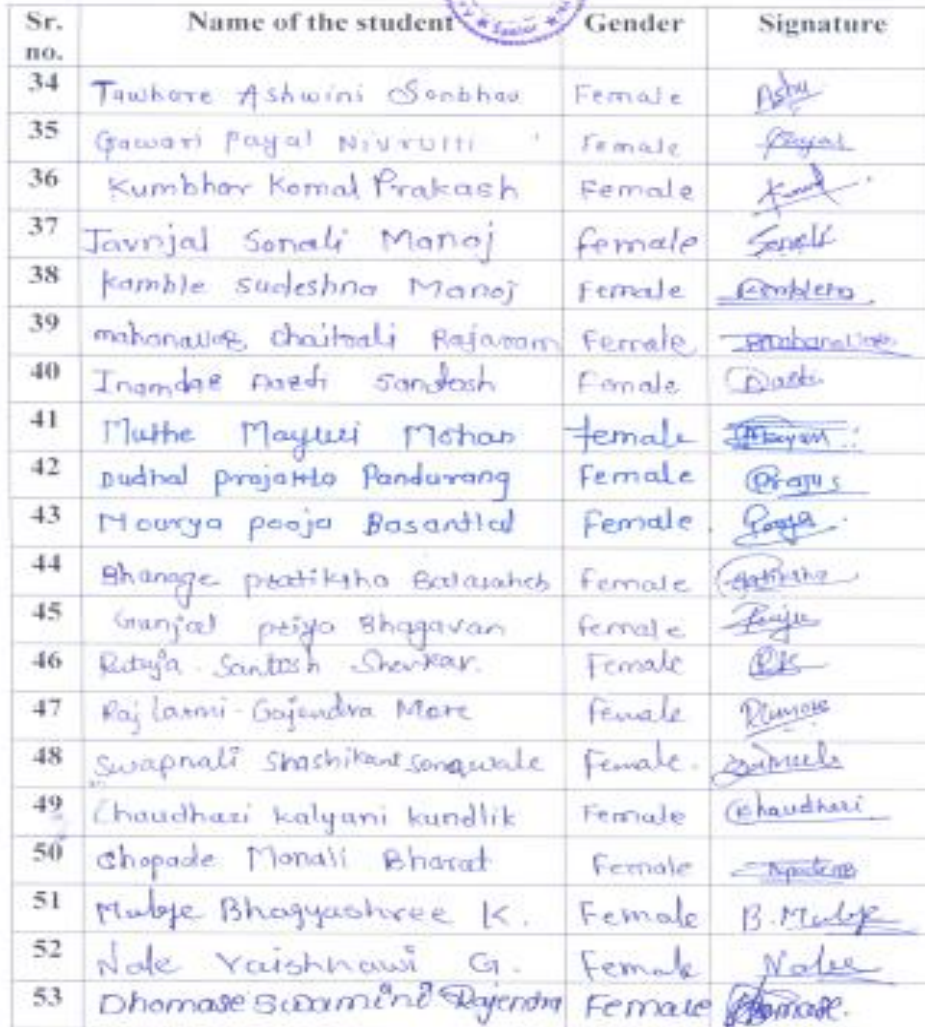 Sr. no. Name of the student Gender Signature
Senior
34 Tawhare Ashwini Sonbhau Female Ashu
35 Gawari Payal Nivrutti Female Payal
36 Kumbhar Komal Prakash Female
37 Javnjal Sonali Manoj female Sonali
38 Kamble Sudeshna Manoj Female
39 mahanawar Chaitrali Rajaram Female
40 Inamdar Aarti Santosh Female Aarti
41 Muthe Mayuri Mohan female Mayuri
42 Dudhal prajakta Pandurang Female Prajus
43 Mourya pooja Basantlal Female. Pooja
44 Bhanage pratiksha Balasaheb Female Pratiksha
45 Gunjal priya Bhagavan female
46 Rutuja Santosh Shevkar. Female RS
47 Rajlaxmi-Gajendra More female
48 Swapnali Shashikant sonawale Female.
49 Chaudhari kalyani kundlik Female Chaudhari
50 Chopade Monali Bharat Female
51 Mulje Bhagyashree K. Female B.Mulje
52 Nale Vaishnawi G. Female Nalee
53 Dhomase Swamini Rajendra Female Dhomase.